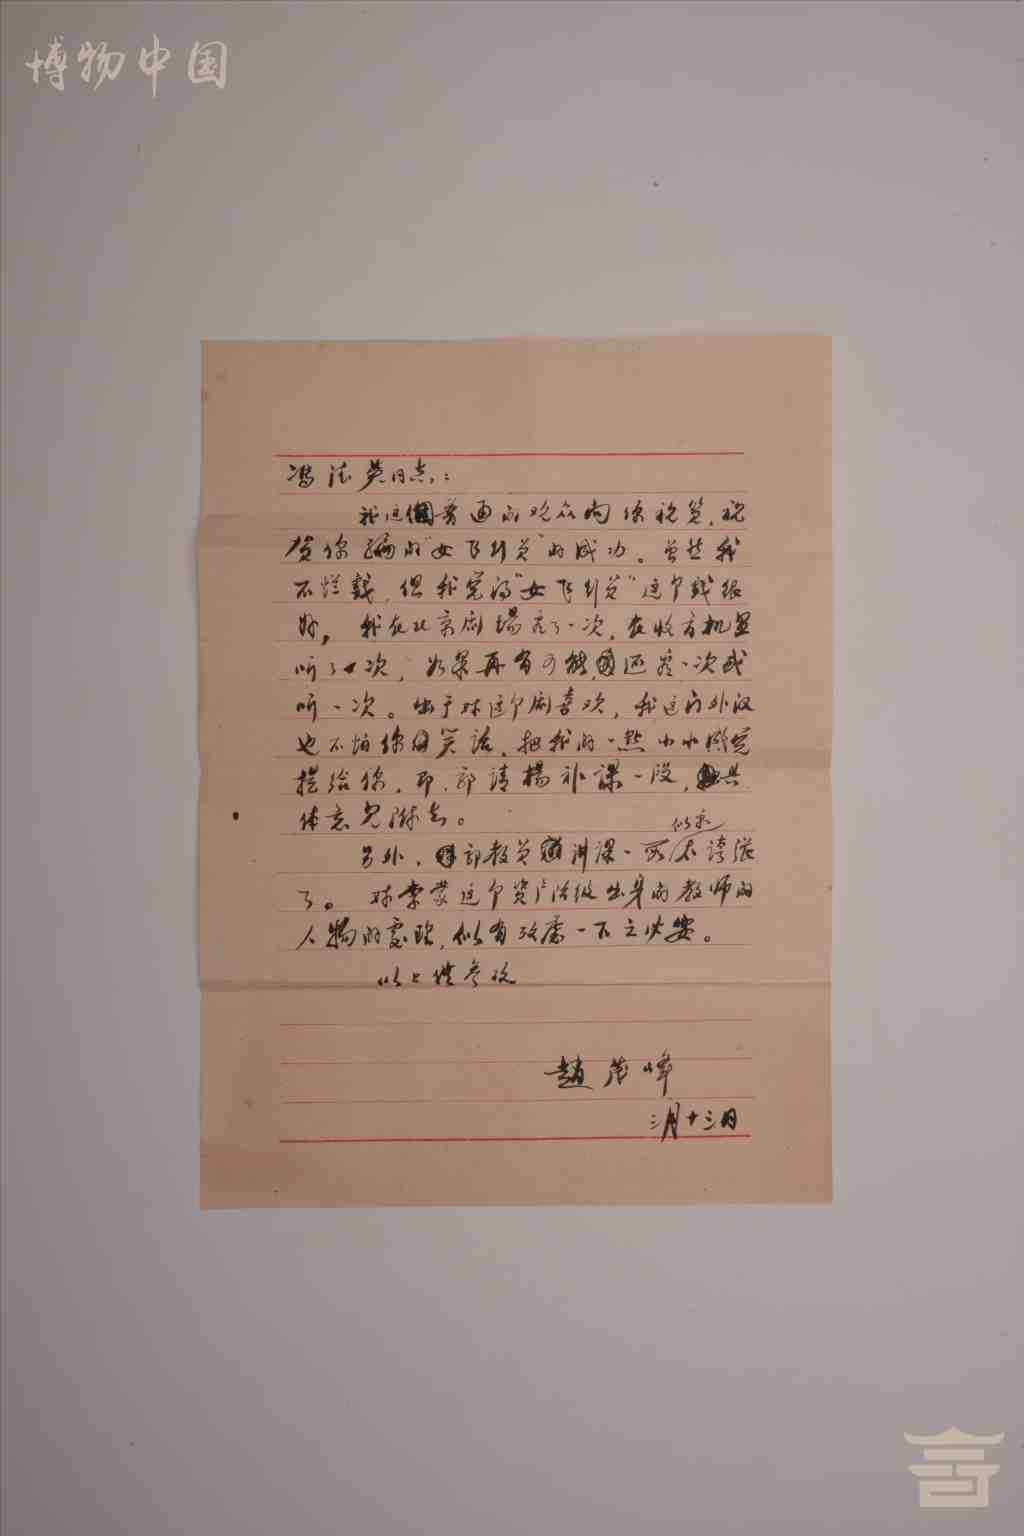 博物中国
冯法英同志:
我这个普通的观众向你祝贺,祝
贺你编的"女飞行员"的成功。尽管我
不懂戏,但我觉得"女飞行员"这个戏很
好,我在北京剧场看了一次,在收音机里
听了一次,如果再有可能,还看一次或
听一次。由于对这个剧喜欢,我这门外汉
也不怕你笑话,把我的一点小小感觉
提给你,即,郭请杨补课一段,具
体意见附去。
另外,郭教员讲课一 似乎太誇张
了。对李蒙这个资产阶级出身的教师的
人物的处理,似有改处一下之必要。
以上供参考
赵茂峰
三月十三日